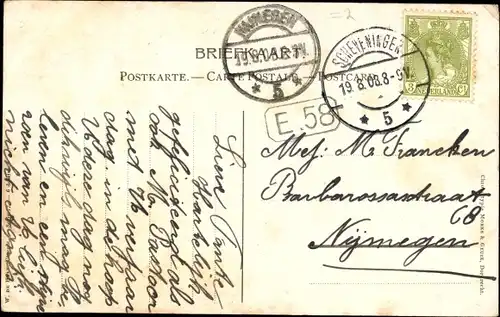 BRIEFKAART
POSTKARTE. — CARTE POSTALE. — POSTCARD.
NIJMEGEN
19.8.08.
5
SCHEVENINGEN
19.8.08.8-9V.
5
E 58
3 Ct
NEDERLAND
Mej: M. Francken
Barbarossastraat
68
Nijmegen
Lieve Tante
Hartelijk
gefeliciteerd als
ook M. Pastoor
met Uw verjaar
dag, in de hoop
U deze dag nog
dikwijls mag be
leven en
van Uw liefh
nicht